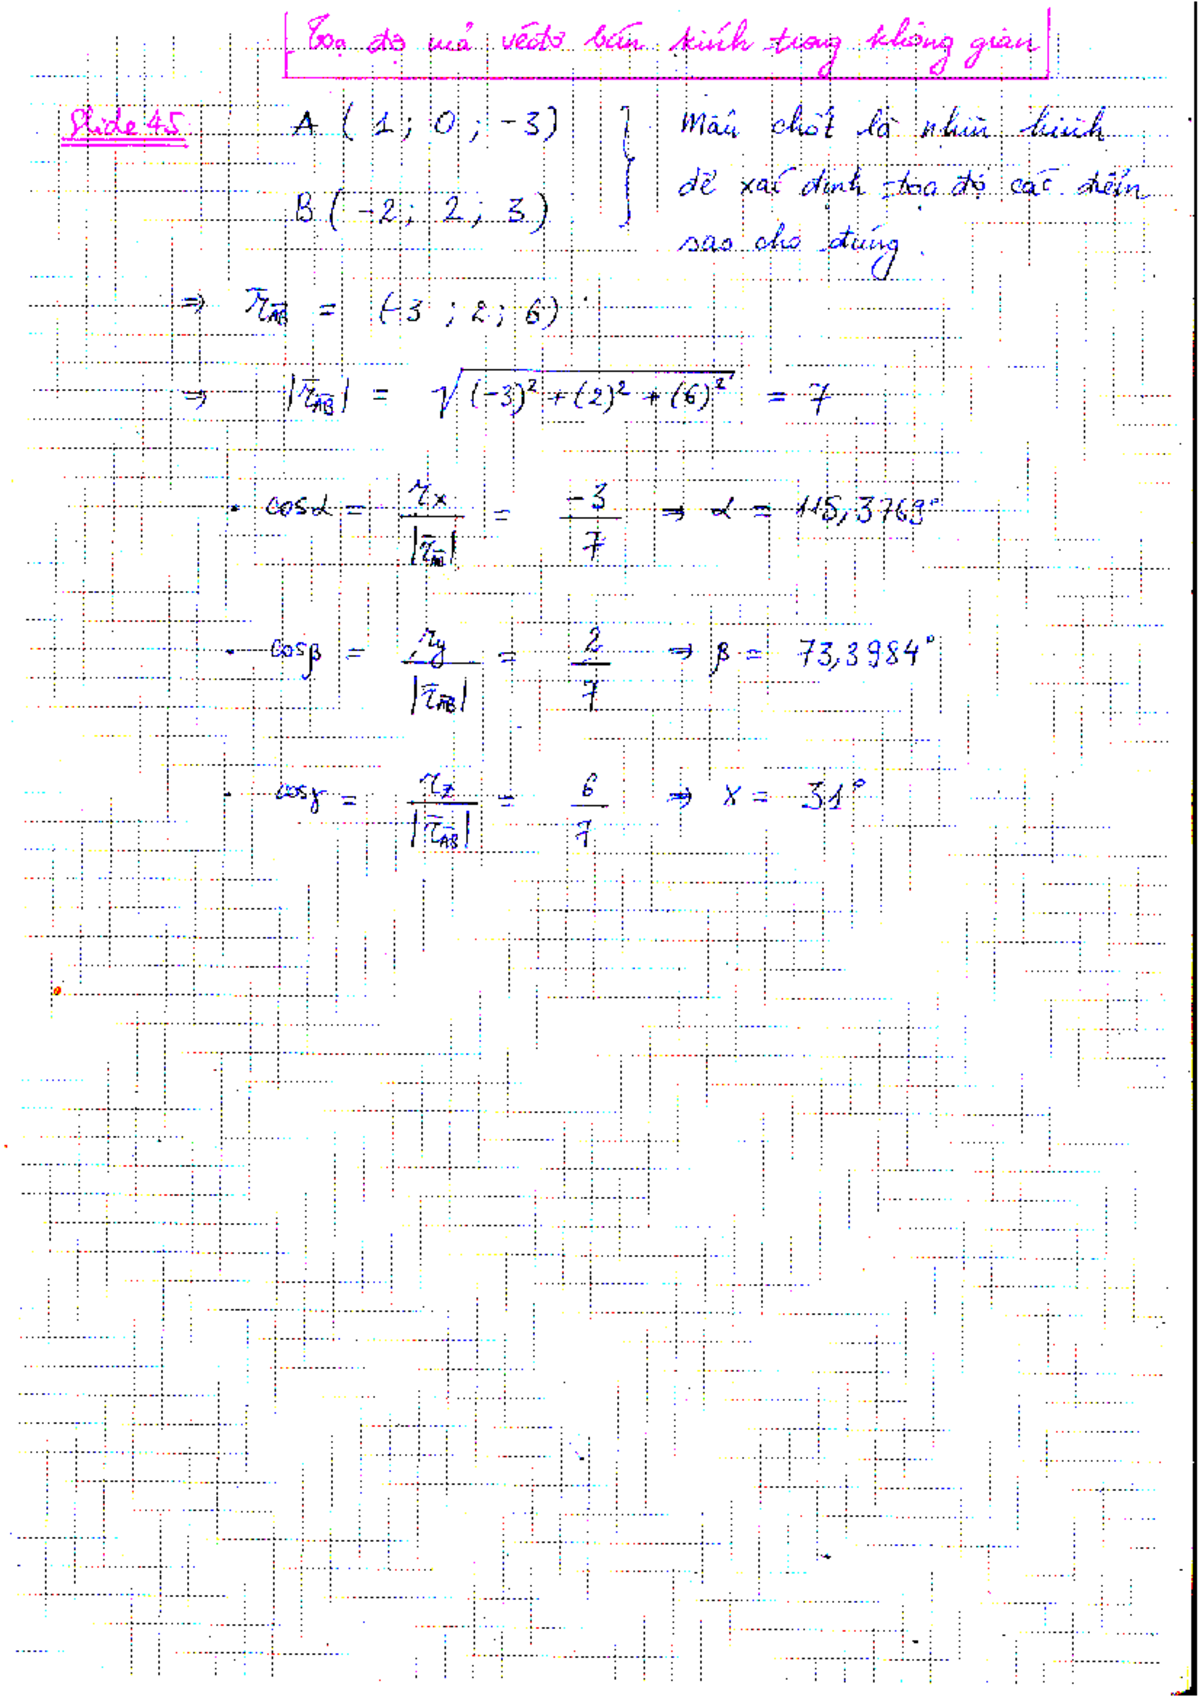 Toạ độ mả véctơ bán kính trong không gian
Slide 45
A ( 1 ; 0 ; -3 )
B ( -2 ; 2 ; 3 )
Mấu chốt là nhìn hình
để xác định toạ độ các điểm
sao cho đúng.
⇒ r̄_AB = (-3 ; 2 ; 6)
⇒ |r̄_AB| = √((-3)² + (2)² + (6)²) = 7
• cosα = rx / |r̄_AB| = -3 / 7 ⇒ α = 115,3769°
• cosβ = ry / |r̄_AB| = 2 / 7 ⇒ β = 73,3984°
• cosγ = rz / |r̄_AB| = 6 / 7 ⇒ γ = 31°